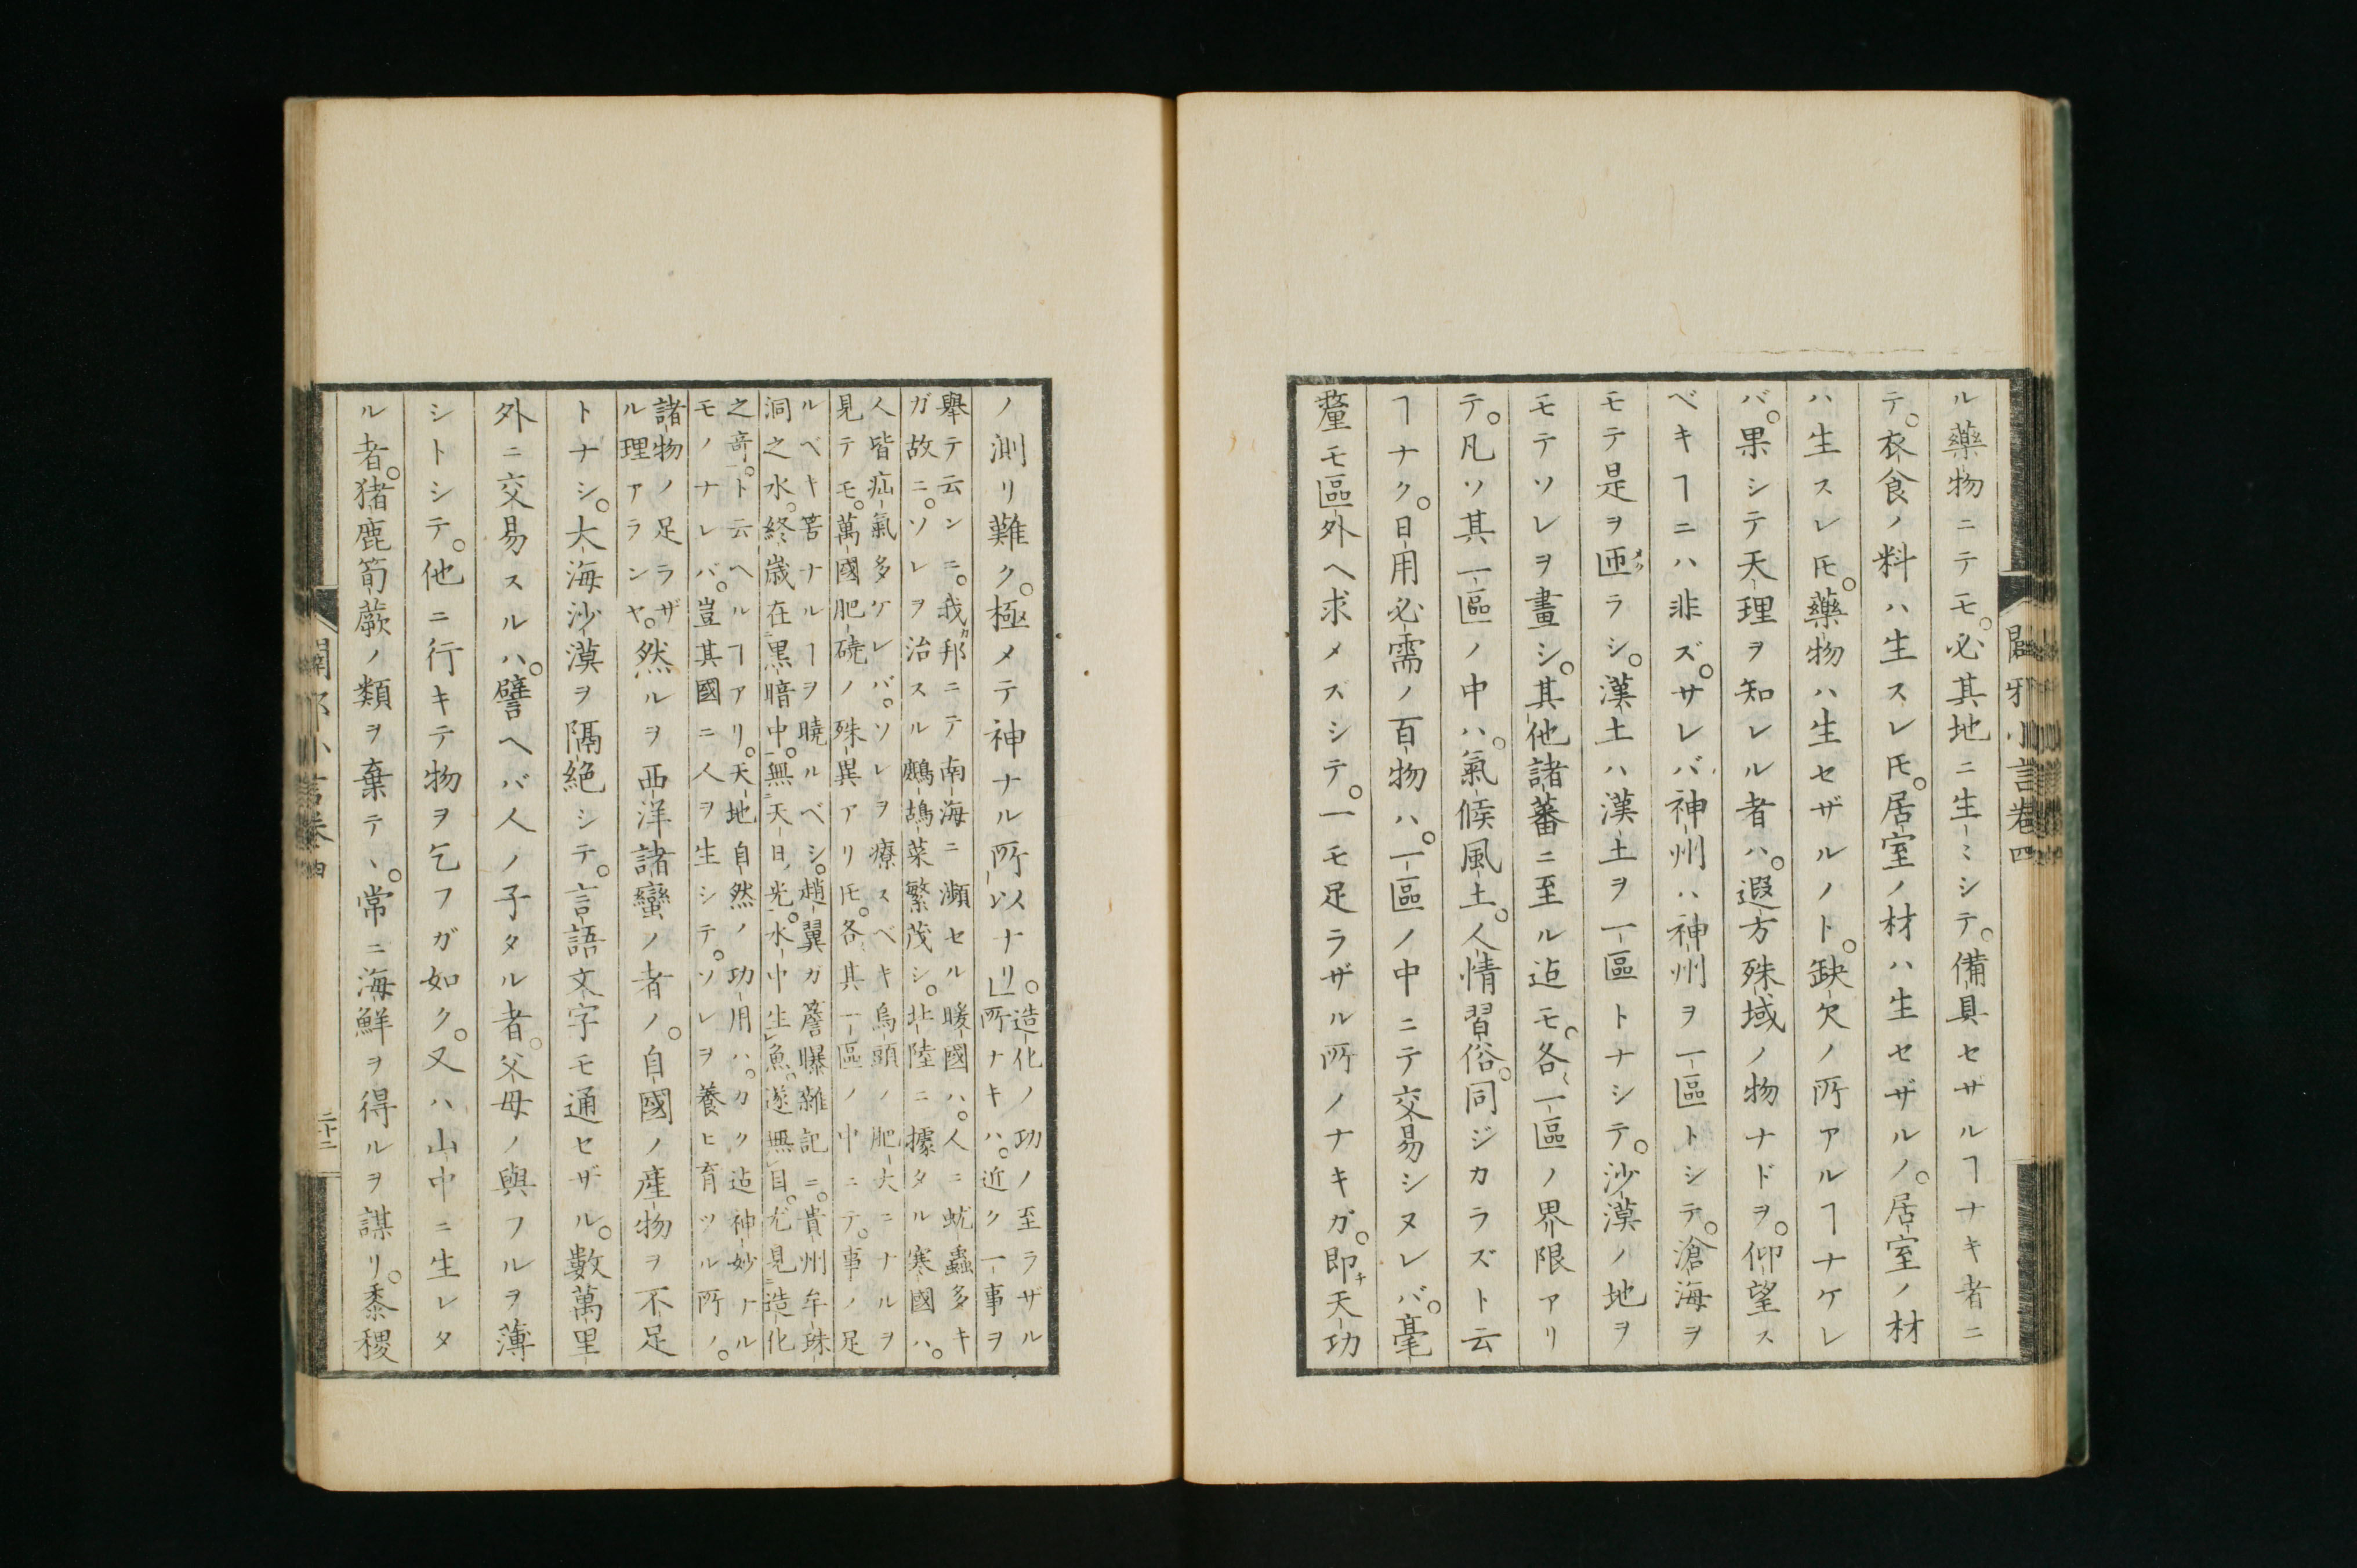 闢邪小言卷四
ル藥物ニテモ。必其地ニ生〻シテ。備具セサルヿナキ者ニ
テ。衣食ノ料ハ生スレ𪜈。居室ノ材ハ生セザルノ。居室ノ材
ハ生スレ𪜈。藥物ハ生セザルノト。缺欠ノ所アルヿナケレ
バ。果シテ天理ヲ知レル者ハ。遐方殊域ノ物ナドヲ。仰望ス
ベキヿニハ非ズ。サレバ神州ハ神州ヲ一區トシテ。滄海ヲ
モテ是ヲ匝メクラシ。漢土ハ漢土ヲ一區トナシテ。沙漠ノ地ヲ
モテソレヲ畫シ。其他諸蕃ニ至ル迠モ。各〻一區ノ界限アリ
テ。凡ソ其一區ノ中ハ。氣候風土。人情習俗。同ジカラズト云
ヿナク。日用必需ノ百物ハ。一區ノ中ニテ交易シヌレバ。毫
釐モ區外ヘ求メズシテ。一モ足ラザル所ノナキガ。即チ天功
ノ測リ難ク。極メテ神ナル所以ナリ」。造化ノ功ノ至ラザル
所ナキハ。近ク一事ヲ
舉テ云ンニ。我カ邦ニテ南海ニ瀕セル暖國ハ。人ニ蚘蟲多キ
ガ故ニ。ソレヲ治スル鷓鴣菜繁茂シ。北陸ニ據タル寒國ハ。
人皆疝氣多ケレバ。ソレヲ療スベキ烏頭ノ肥大ニナルヲ
見テモ。萬國肥磽ノ殊異アリ𪜈。各其一區ノ中ニテ。事ノ足
ルベキ筈ナルヿヲ曉ルベシ。趙翼ガ簷曝雜記ニ。貴州牟珠
洞之水。終歳在黒暗中。無天日光。水中生魚。遂無目。尤見造化
之竒。ト云ヘルヿアリ。天地自然ノ功用ハ。カク迠神妙ナル
モノナレバ。豈其國ニ人ヲ生シテ。ソレヲ養ヒ育ツル所ノ。
諸物ノ足ラザ
ル理アランヤ。然ルヲ西洋諸蠻ノ者ノ。自國ノ産物ヲ不足
トナシ。大海沙漠ヲ隔絶シテ。言語文字モ通セザル。數萬里
外ニ交易スルハ。譬ヘバ人ノ子タル者。父母ノ與フルヲ薄
シトシテ。他ニ行キテ物ヲ乞フガ如ク。又ハ山中ニ生レタ
ル者。猪鹿筍蕨ノ類ヲ棄テヽ。常ニ海鮮ヲ得ルヲ謀リ。黍稷
闢邪小言卷四
二十二